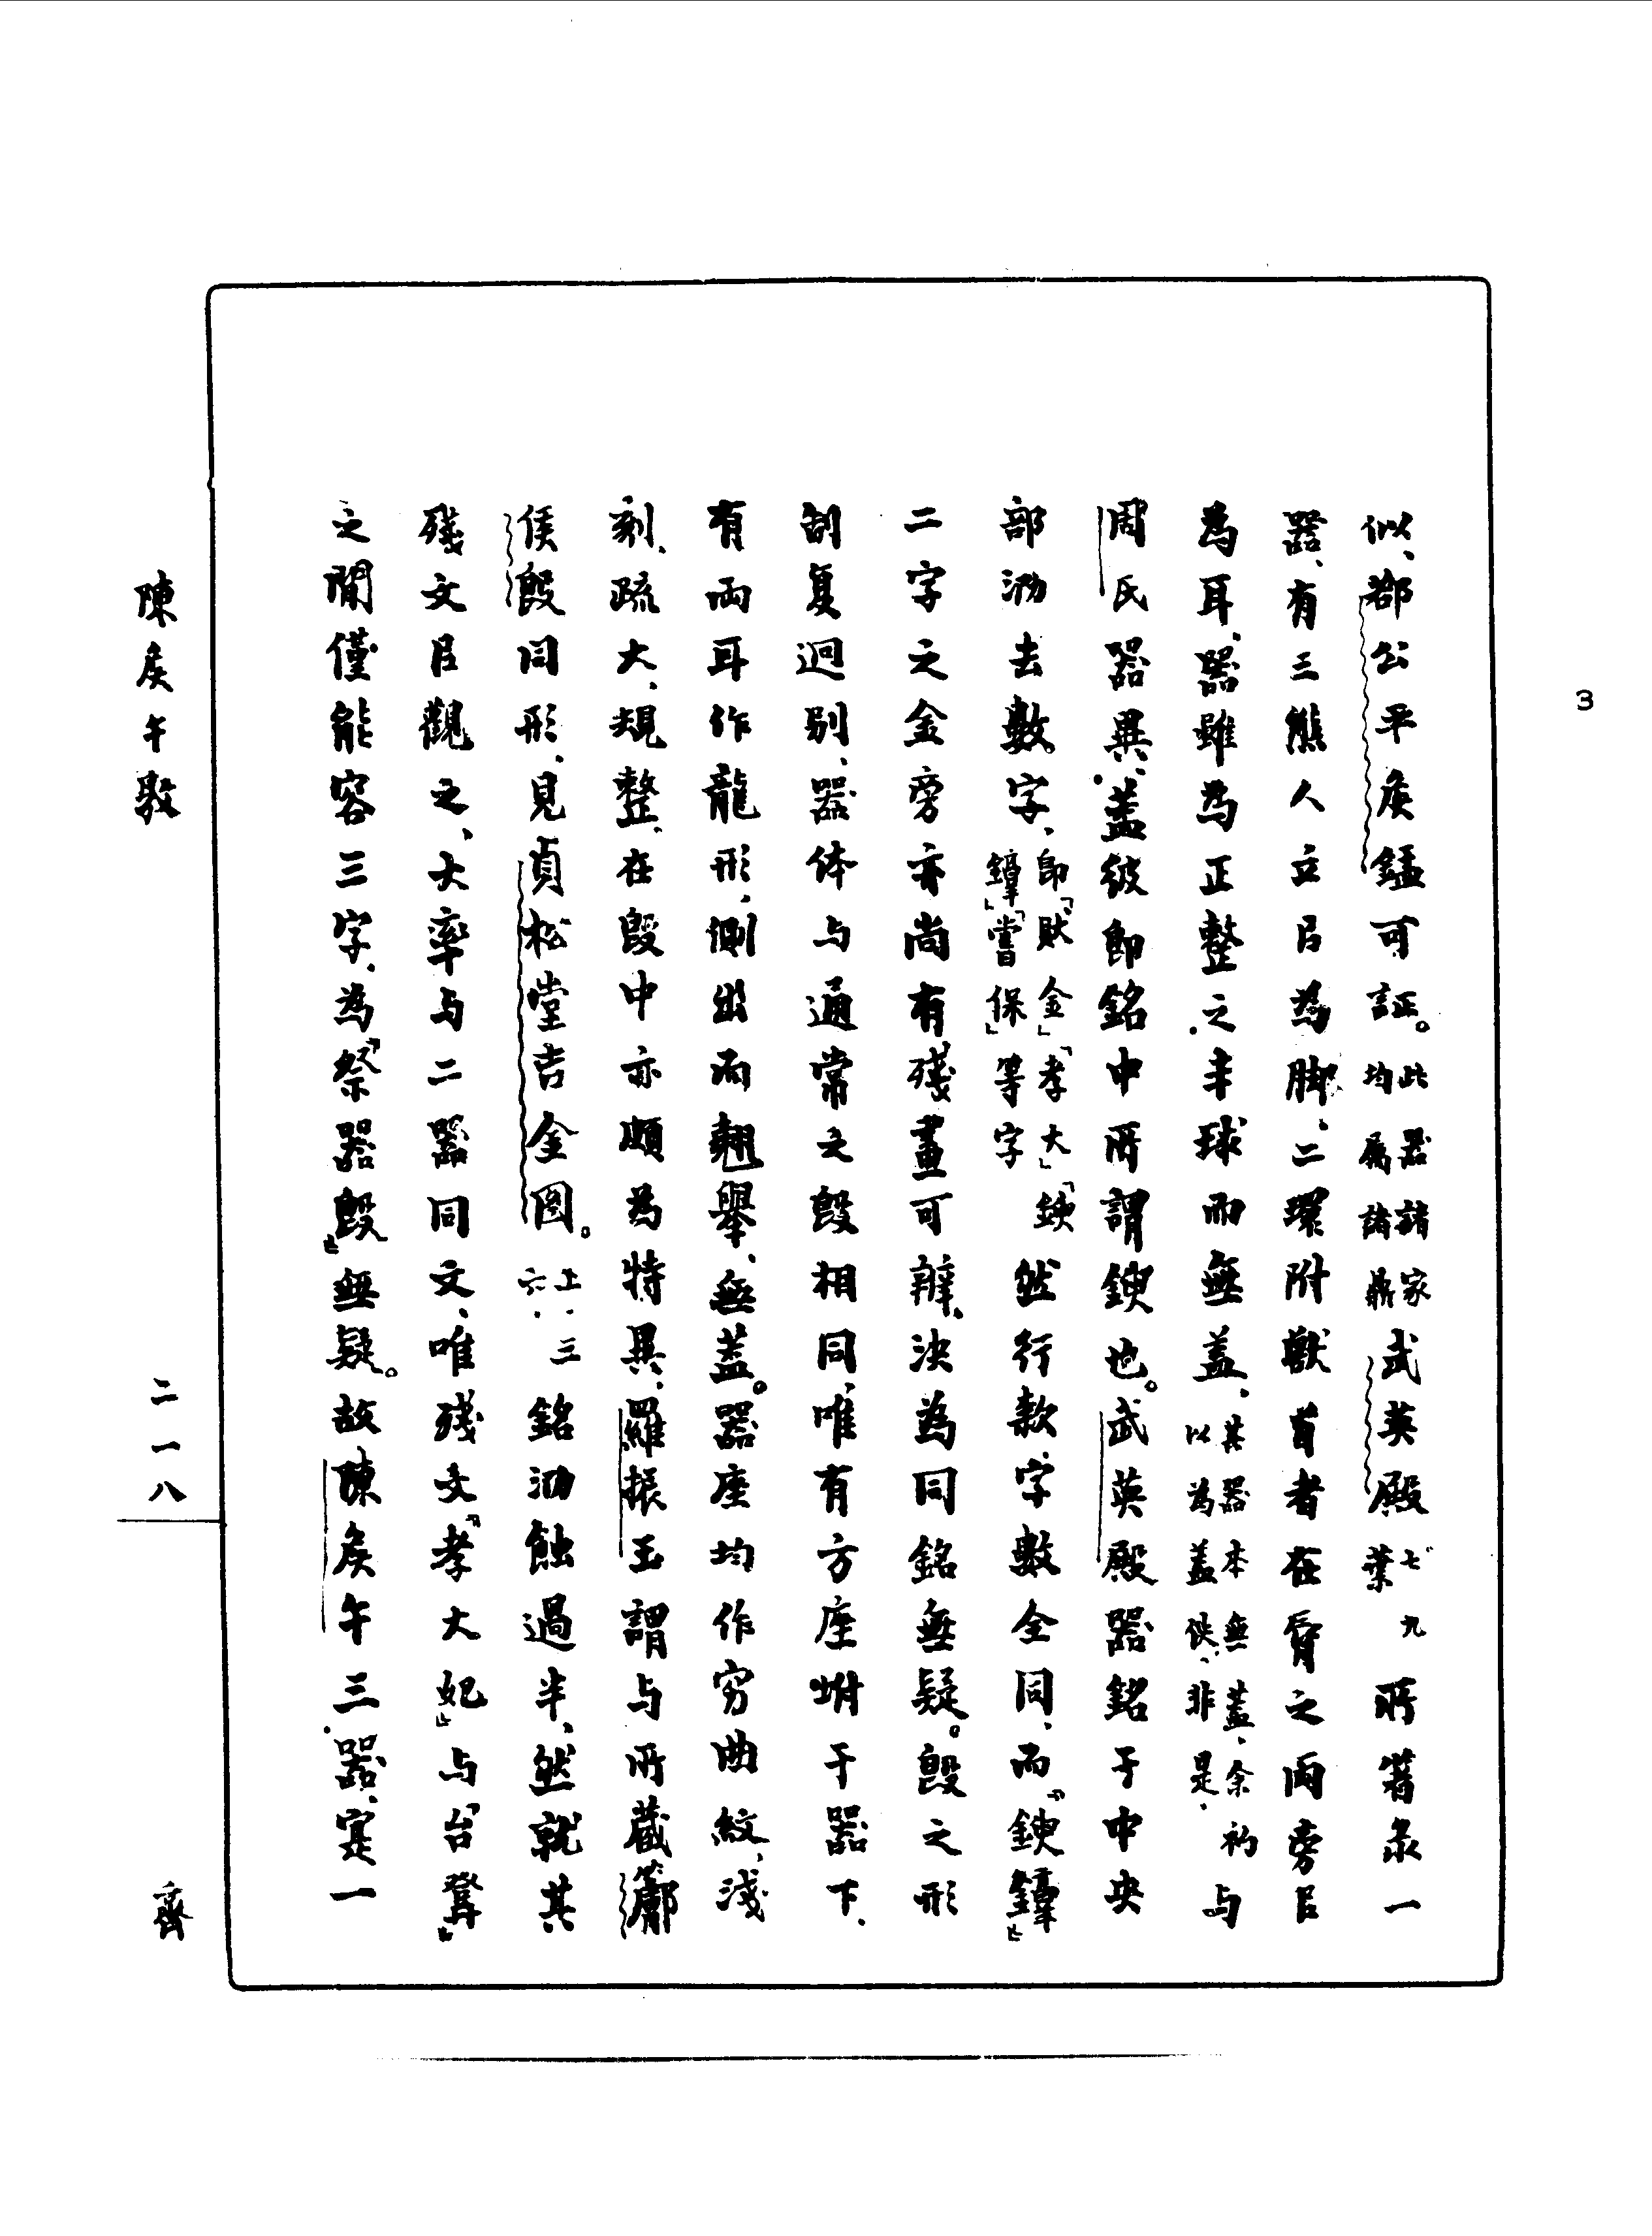 似、鄀公平侯䥐可証。此器諸家均屬諸鼎武英殿七九葉所箸录一
器、有三熊人立㠯為脚、二環附獸首者在脣之兩旁㠯
為耳、器雖為正整之半球而無蓋、其器本無蓋、余初以為蓋佚、非是、与
周氏器異、蓋彼即銘中所謂鐭也。武英殿器銘于中央
部泐去數字、即「賦金」「孝大」「鐭𨭌」「嘗保」等字然行款字數全同、而「鐭𨭌」
二字之金旁亦尚有殘畫可辨、決為同銘無疑。𣪘之形
制复迥别、器体与通常之𣪘相同、唯有方座坿于器下、
有兩耳作龍形、側出而翹舉、無蓋。器座均作穷曲紋、淺
刻、疏大、規整、在𣪘中亦頗為特異、羅振玉謂与所藏䣙
侯𣪘同形、見貞松堂吉金圖。上、三六、銘泐蝕過半、然就其
殘文㠯觀之、大率与二器同文、唯殘文「孝大妃」与「台登」
之間僅能容三字、為「祭器𣪘」無疑。故陳侯午三器、寔一
陳侯午敦
二一八
齊
3